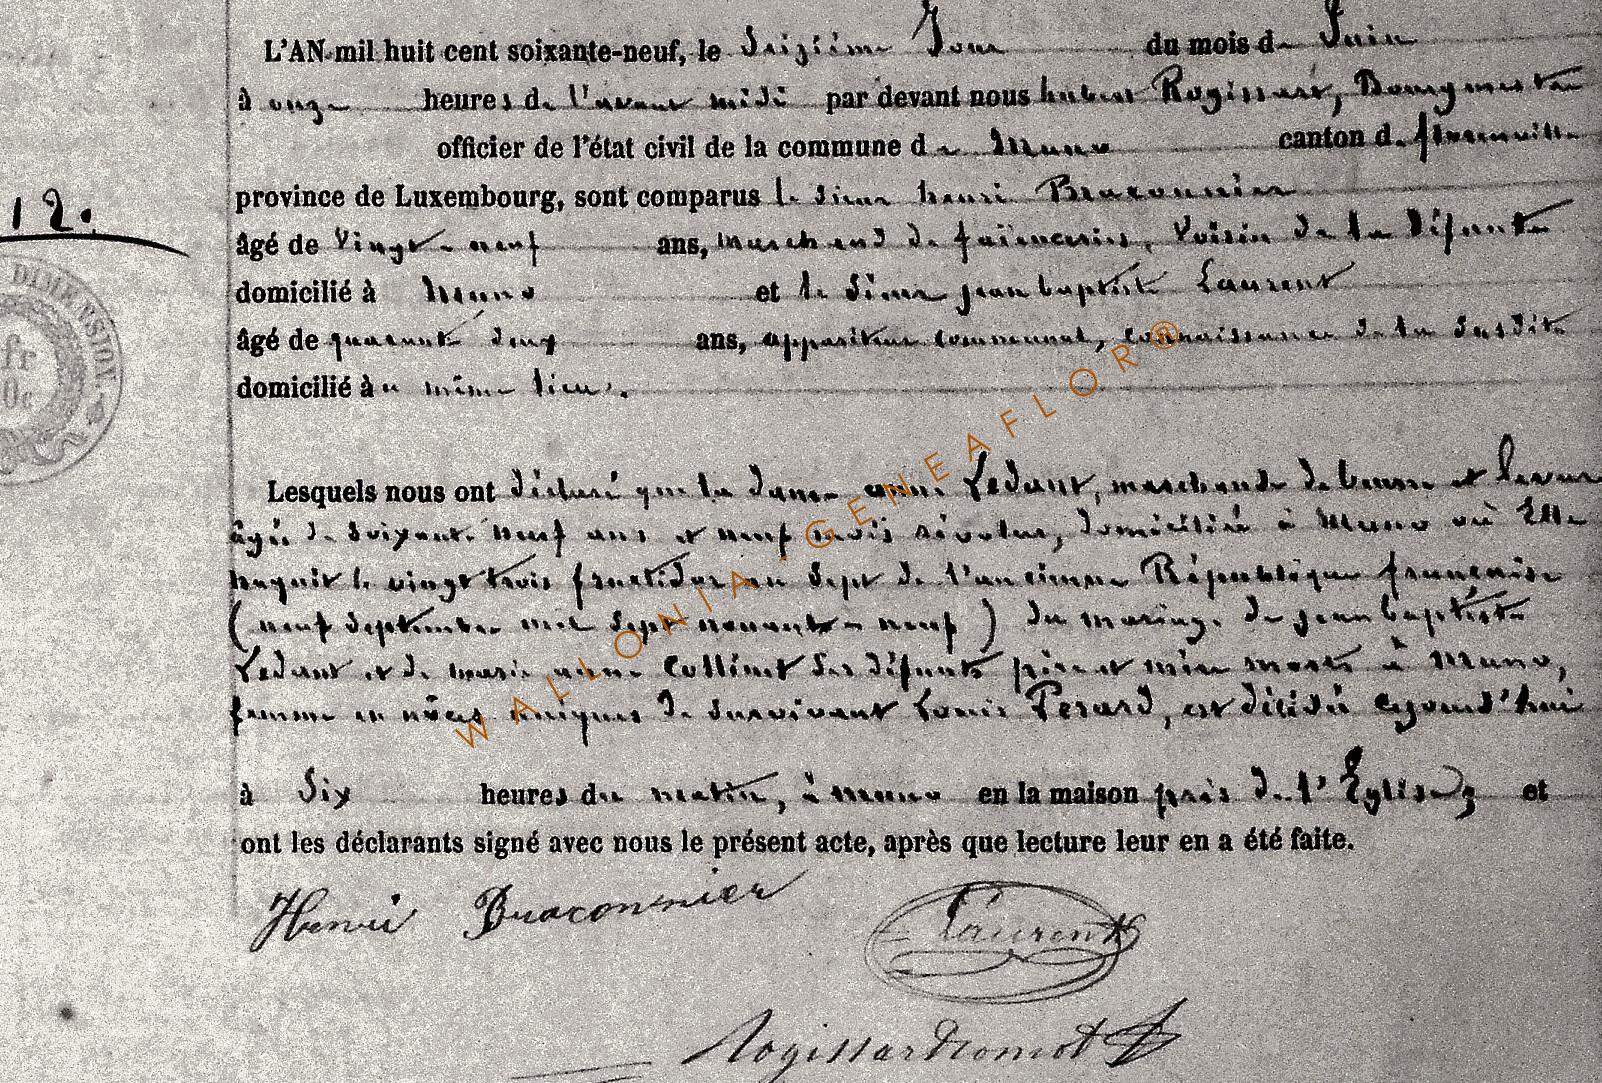 L'AN mil huit cent soixante-neuf, le Seizième Jour du mois de Juin
à onze heures de l'avant midi par devant nous hubert Rogissart, Bourgmestre
officier de l'état civil de la commune de Muno canton de florenville
province de Luxembourg, sont comparus le sieur henri Braconnier
12.
âgé de vingt-neuf ans, marchand de faïenceries, Voisin de la Défunte
domicilié à Muno et le sieur jean baptiste Laurent
âgé de quarante deux ans, appariteur communal, connaissance de la susdite
domicilié au même lieu.
DIMENSION.
fr
0c
Lesquels nous ont déclaré que la dame anne Ledant, marchande de beurre et
âgée de soixante neuf ans et neuf mois révolus, domiciliée à Muno où Elle
naquit le vingt trois fructidor an sept de l'ancienne République française
(neuf septembre mil sept nonante-neuf) du mariage de jean baptiste
Ledant et de marie anne Collinet ses défunts père et mère morts à Muno,
femme en nôces uniques de survivant Louis Perard, est décédée cejourd'hui
à Six heures du matin, à muno en la maison près de l'Eglise; et
ont les déclarants signé avec nous le présent acte, après que lecture leur en a été faite.
Henri Braconnier Laurent
Rogissart
WALLONIA-GENEAFLOR®